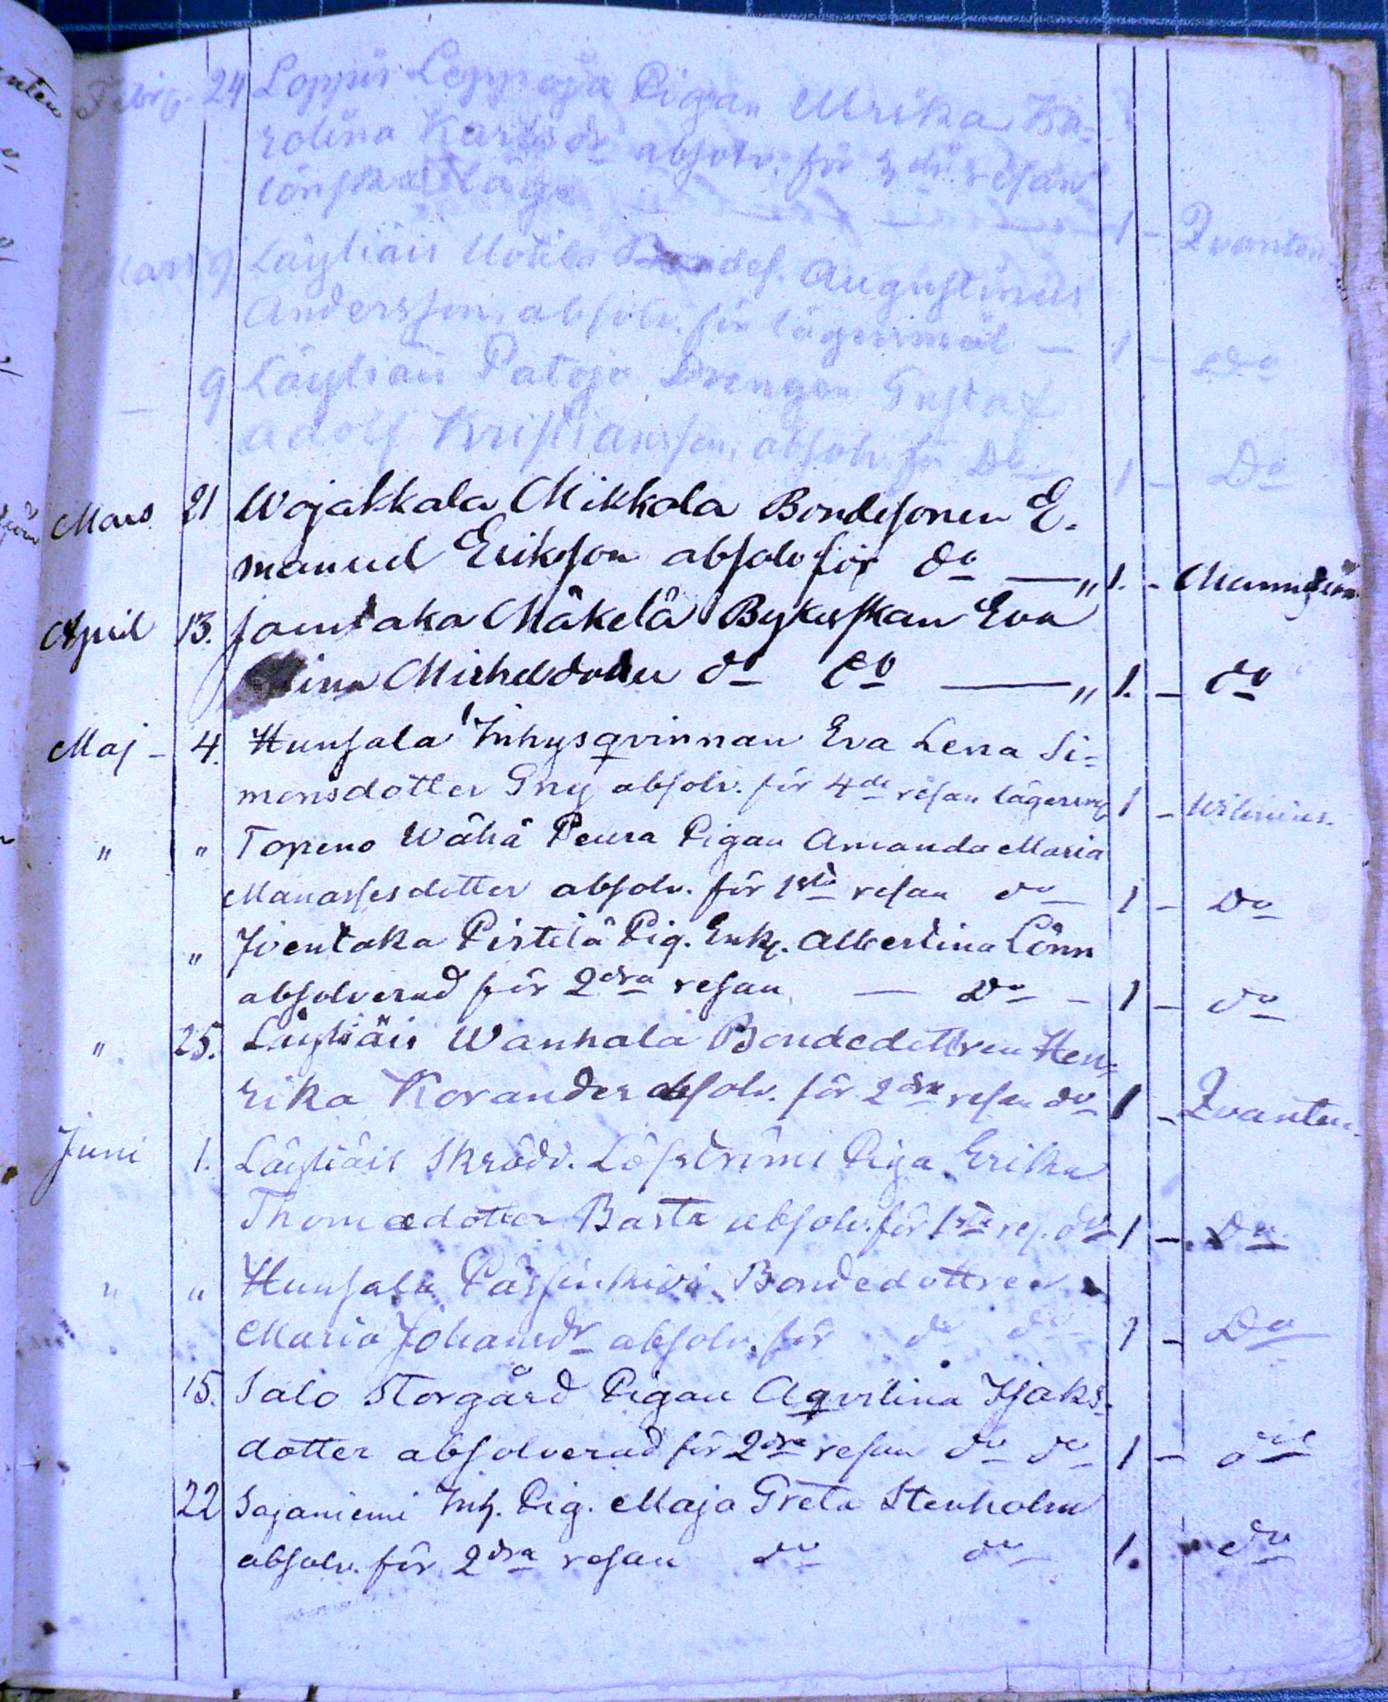 Febr. 24 Loppis Leppäoja Pigan Ulrika Ka-
rolina Karlsdr absolv. för 3dje resan
lönskaläge — 1 - Qvanten
Mars 9 Läyliäis Uotila Bondes. Augustinus
Andersson, absolv. för lägersmål — 1 - Do
— 9 Läyliäis Patoja Drengen Gustaf
Adolf Kristiansson, absolv. för Do 1 - Do
Mars 21 Wojakkala Mikkola Bondesonen E-
manuel Erikson absolv för do — „ 1. -
April 13. Joentaka Mäkelä Bykuskan Eva
Stina Michelsdotter do do — „ 1. - do
Maj - 4. Hunsala Inhysqvinnan Eva Lena Si-
monsdotter Gry absolv. för 4de resan lägersm 1 - Wilenius.
" " Topeno Wähä Peura Pigan Amanda Maria
Manassesdotter absolv. för 1sta resan do 1 - Do
" Joentaka Pistilä Pig. Enk. Albertina Lönn
absolverad för 2dra resan — Do - 1 - do
" 25. Läyliäis Wanhala Bondedottren Hen-
rika Korander absolv. för 2dra resan do 1 - Qvanten.
Juni 1. Läyliäis Skrädd. Löfströms Piga Erika
Thomædotter Basta absolv. för 1sta res. do 1 - Do
" " Hunsala Pässinkivi Bondedottren
Maria Johansdr absolv. för do do 1 - Do
15. Salo Storgård Pigan Aqvilina Isaks-
dotter absolverad för 2dra resan do do 1 - do
22 Sajaniemi Inh. Pig. Maja Greta Stenholm
absolv. för 2dra resan do do 1. - do